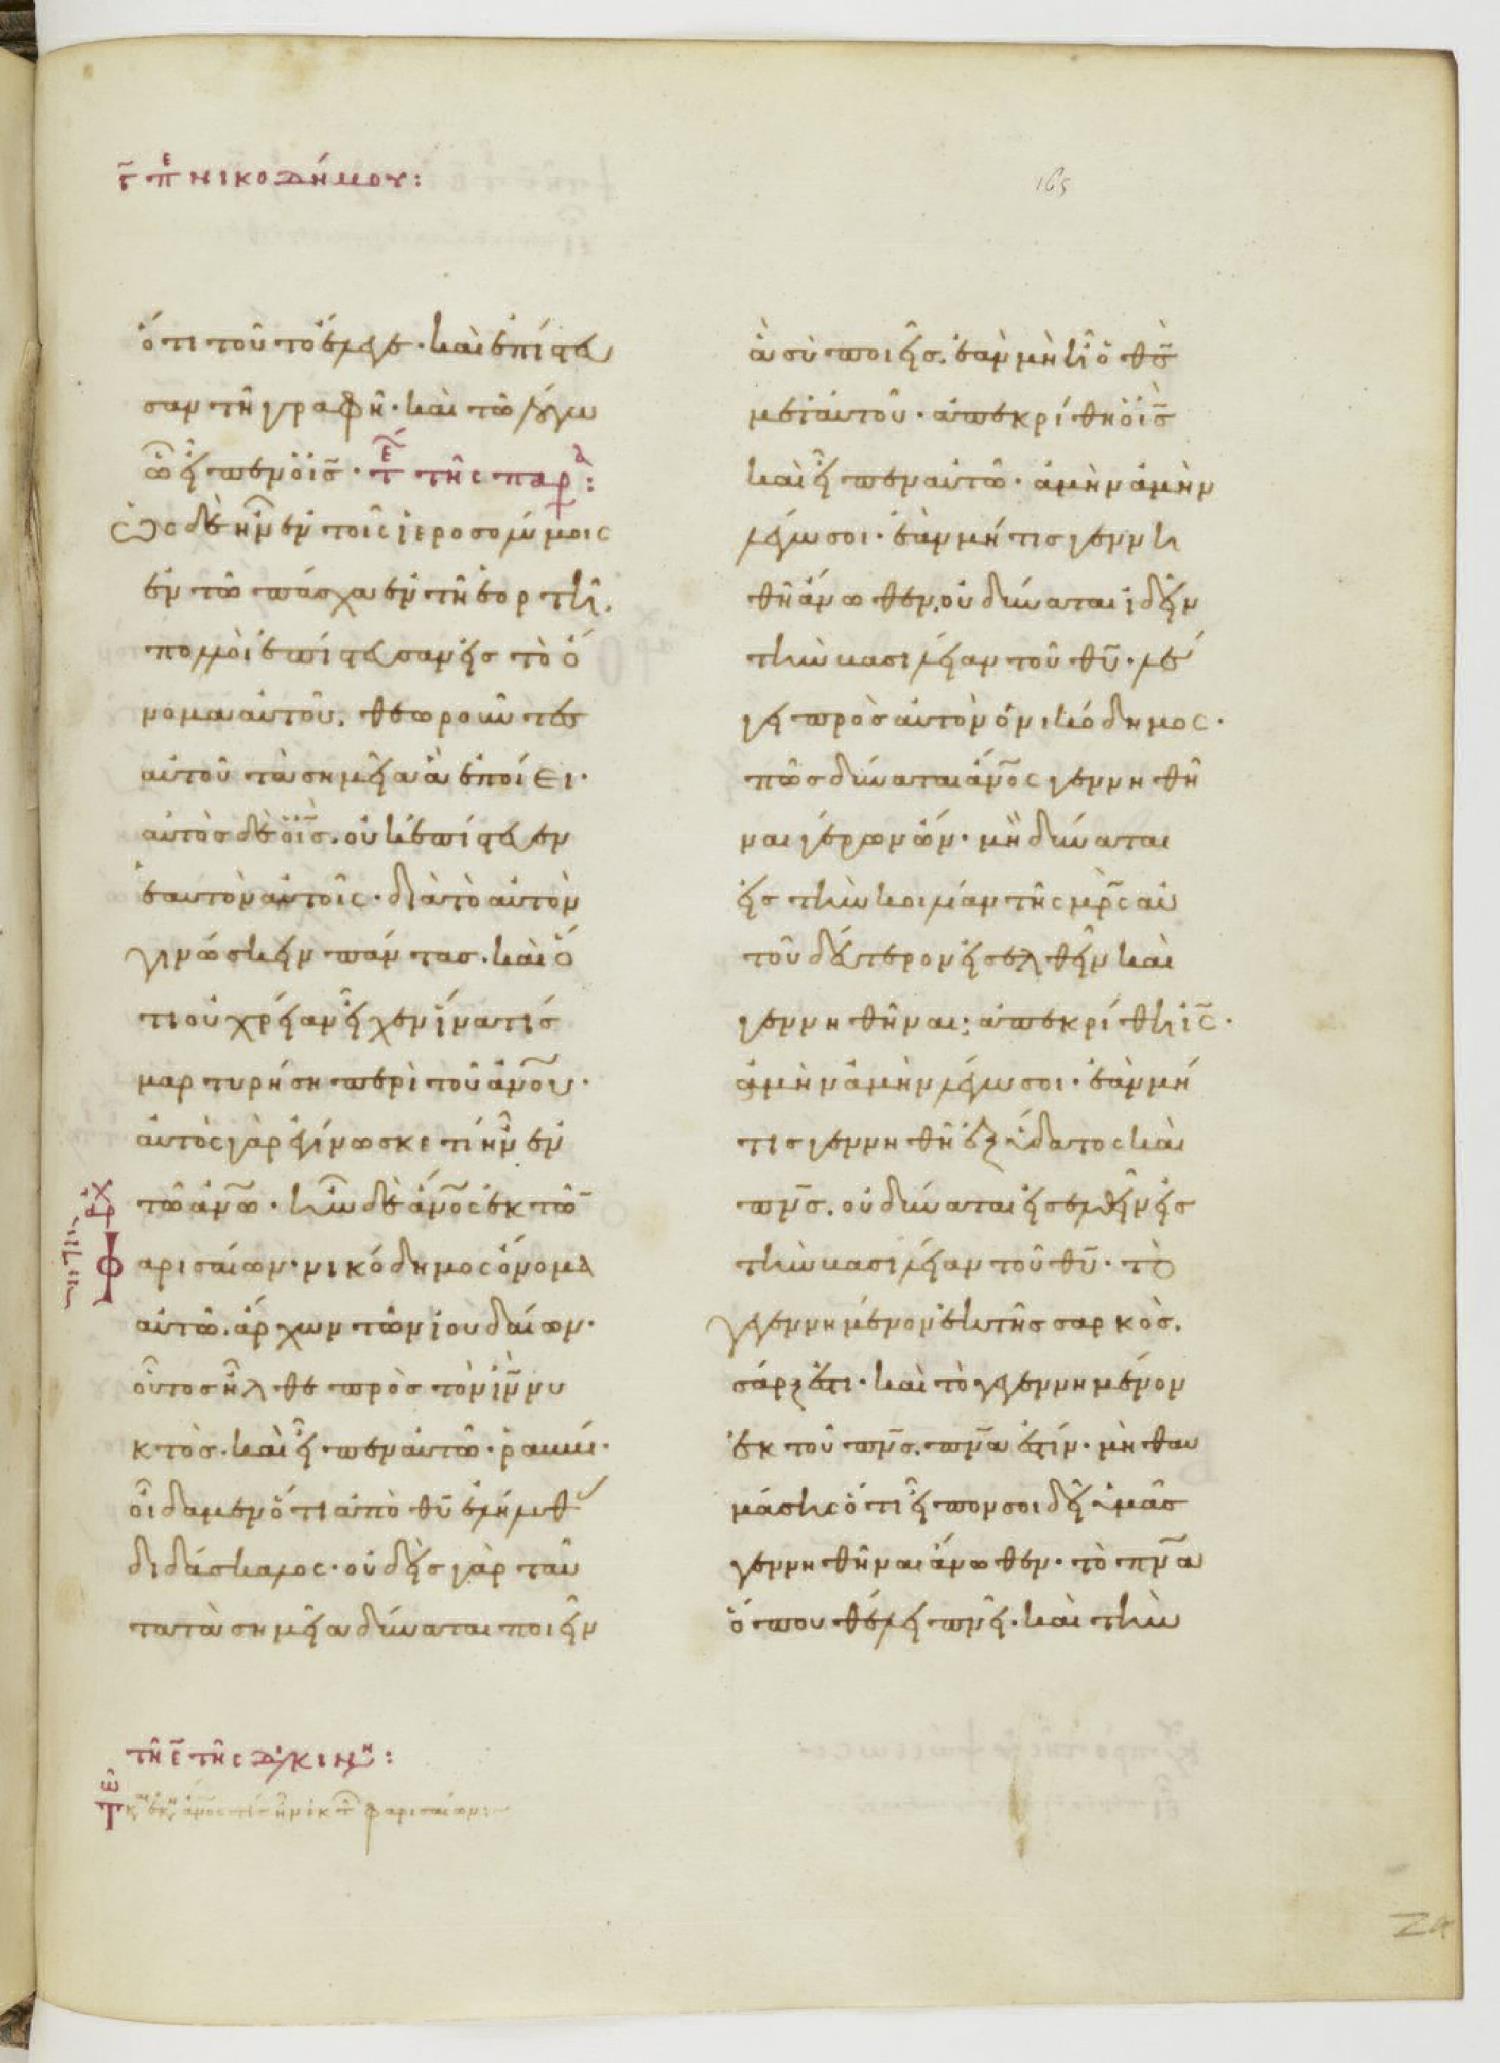 γ̄ πε νικοδήμου:
165
ὅτι τοῦτο ἔλεγε· καὶ ἐπίστευ
σαν τῆ γραφῆ· καὶ τῶ λόγω
ὧ εἶπεν ὁ ις̄· τε τῆς παρ:
Ὡς δὲ ἦν ἐν τοῖς ἱεροσολύμοις
ἐν τῶ πάσχα ἐν τῆ ἑορτῆ.
πολλοὶ ἐπίστευσαν εἰς τὸ ὄ
νομα αὐτοῦ. θεωροῦντες
αὐτοῦ τὰ σημεῖα ἃ ἐποίει·
αὐτὸς δὲ ὁ ις̄. οὐκ ἐπίστευεν
ἑαυτὸν αὐτοῖς· διὰ τὸ αὐτὸν
γινώσκειν πάντας. καὶ ὅ
τι οὐ χρείαν εἶχεν ἵνα τίς
μαρτυρήση περὶ τοῦ ἀνο̄υ·
αὐτὸς γὰρ ἐγίνωσκε τί ἦν ἐν
τῶ ἀνω̄· ἦν δὲ ἄνο̄ς ἐκ τῶ̄
ἀρχ
φαρισαίων· νικόδημος ὄνομα
αὐτῶ. ἄρχων τῶν ἰουδαίων·
οὗτος ἦλθε πρὸς τὸν ιν̄ νυ
κτὸς. καὶ εἶπεν αὐτῶ· ῥαββί·
οἶδαμεν ὅτι ἀπὸ θῡ ἐλήλυθ
διδάσκαλος· οὐδεὶς γὰρ ταῦ
τα τὰ σημεῖα δύναται ποιεῖν
τῆ ε̄ τῆς διακινη:
τε
ἃ σὺ ποιεῖς. ἐὰν μὴ ἦ ὁ θς̄
μετ' αὐτοῦ· ἀπεκρίθη ὁ ις̄
καὶ εἶπεν αὐτῶ· ἀμὴν ἀμὴν
λέγω σοι· ἐὰν μή τις γεννη
θῆ ἄνωθεν. οὐ δύναται ἰδεῖν
τὴν βασιλείαν τοῦ θῡ· λέ
γει πρὸς αὐτὸν ὁ νικόδημος·
πῶς δύναται ἄνο̄ς γεννηθῆ
ναι γέρων ὤν· μὴ δύναται
εἰς τὴν κοιλίαν τῆς μρ̄ς αὐ
τοῦ δεύτερον εἰσελθεῖν καὶ
γεννηθῆναι; ἀπεκρίθη ις̄·
ἀμὴν ἀμὴν λέγω σοι· ἐὰν μή
τις γεννηθῆ ἐξ ὕδατος καὶ
πνς̄. οὐ δύναται εἰσελθεῖν εἰς
τὴν βασιλείαν τοῦ θῡ· τὸ
γεγεννημένον ἐκ τῆς σαρκὸς.
σάρξ ἐστι· καὶ τὸ γεγεννημένον
ἐκ τοῦ πνς̄. πνᾱ ἐστίν· μὴ θαυ
μάσης ὅτι εἶπον σοι δεῖ ὑμᾶς
γεννηθῆναι ἄνωθεν· τὸ πνᾱ
ὅπου θέλει πνεῖ· καὶ τὴν